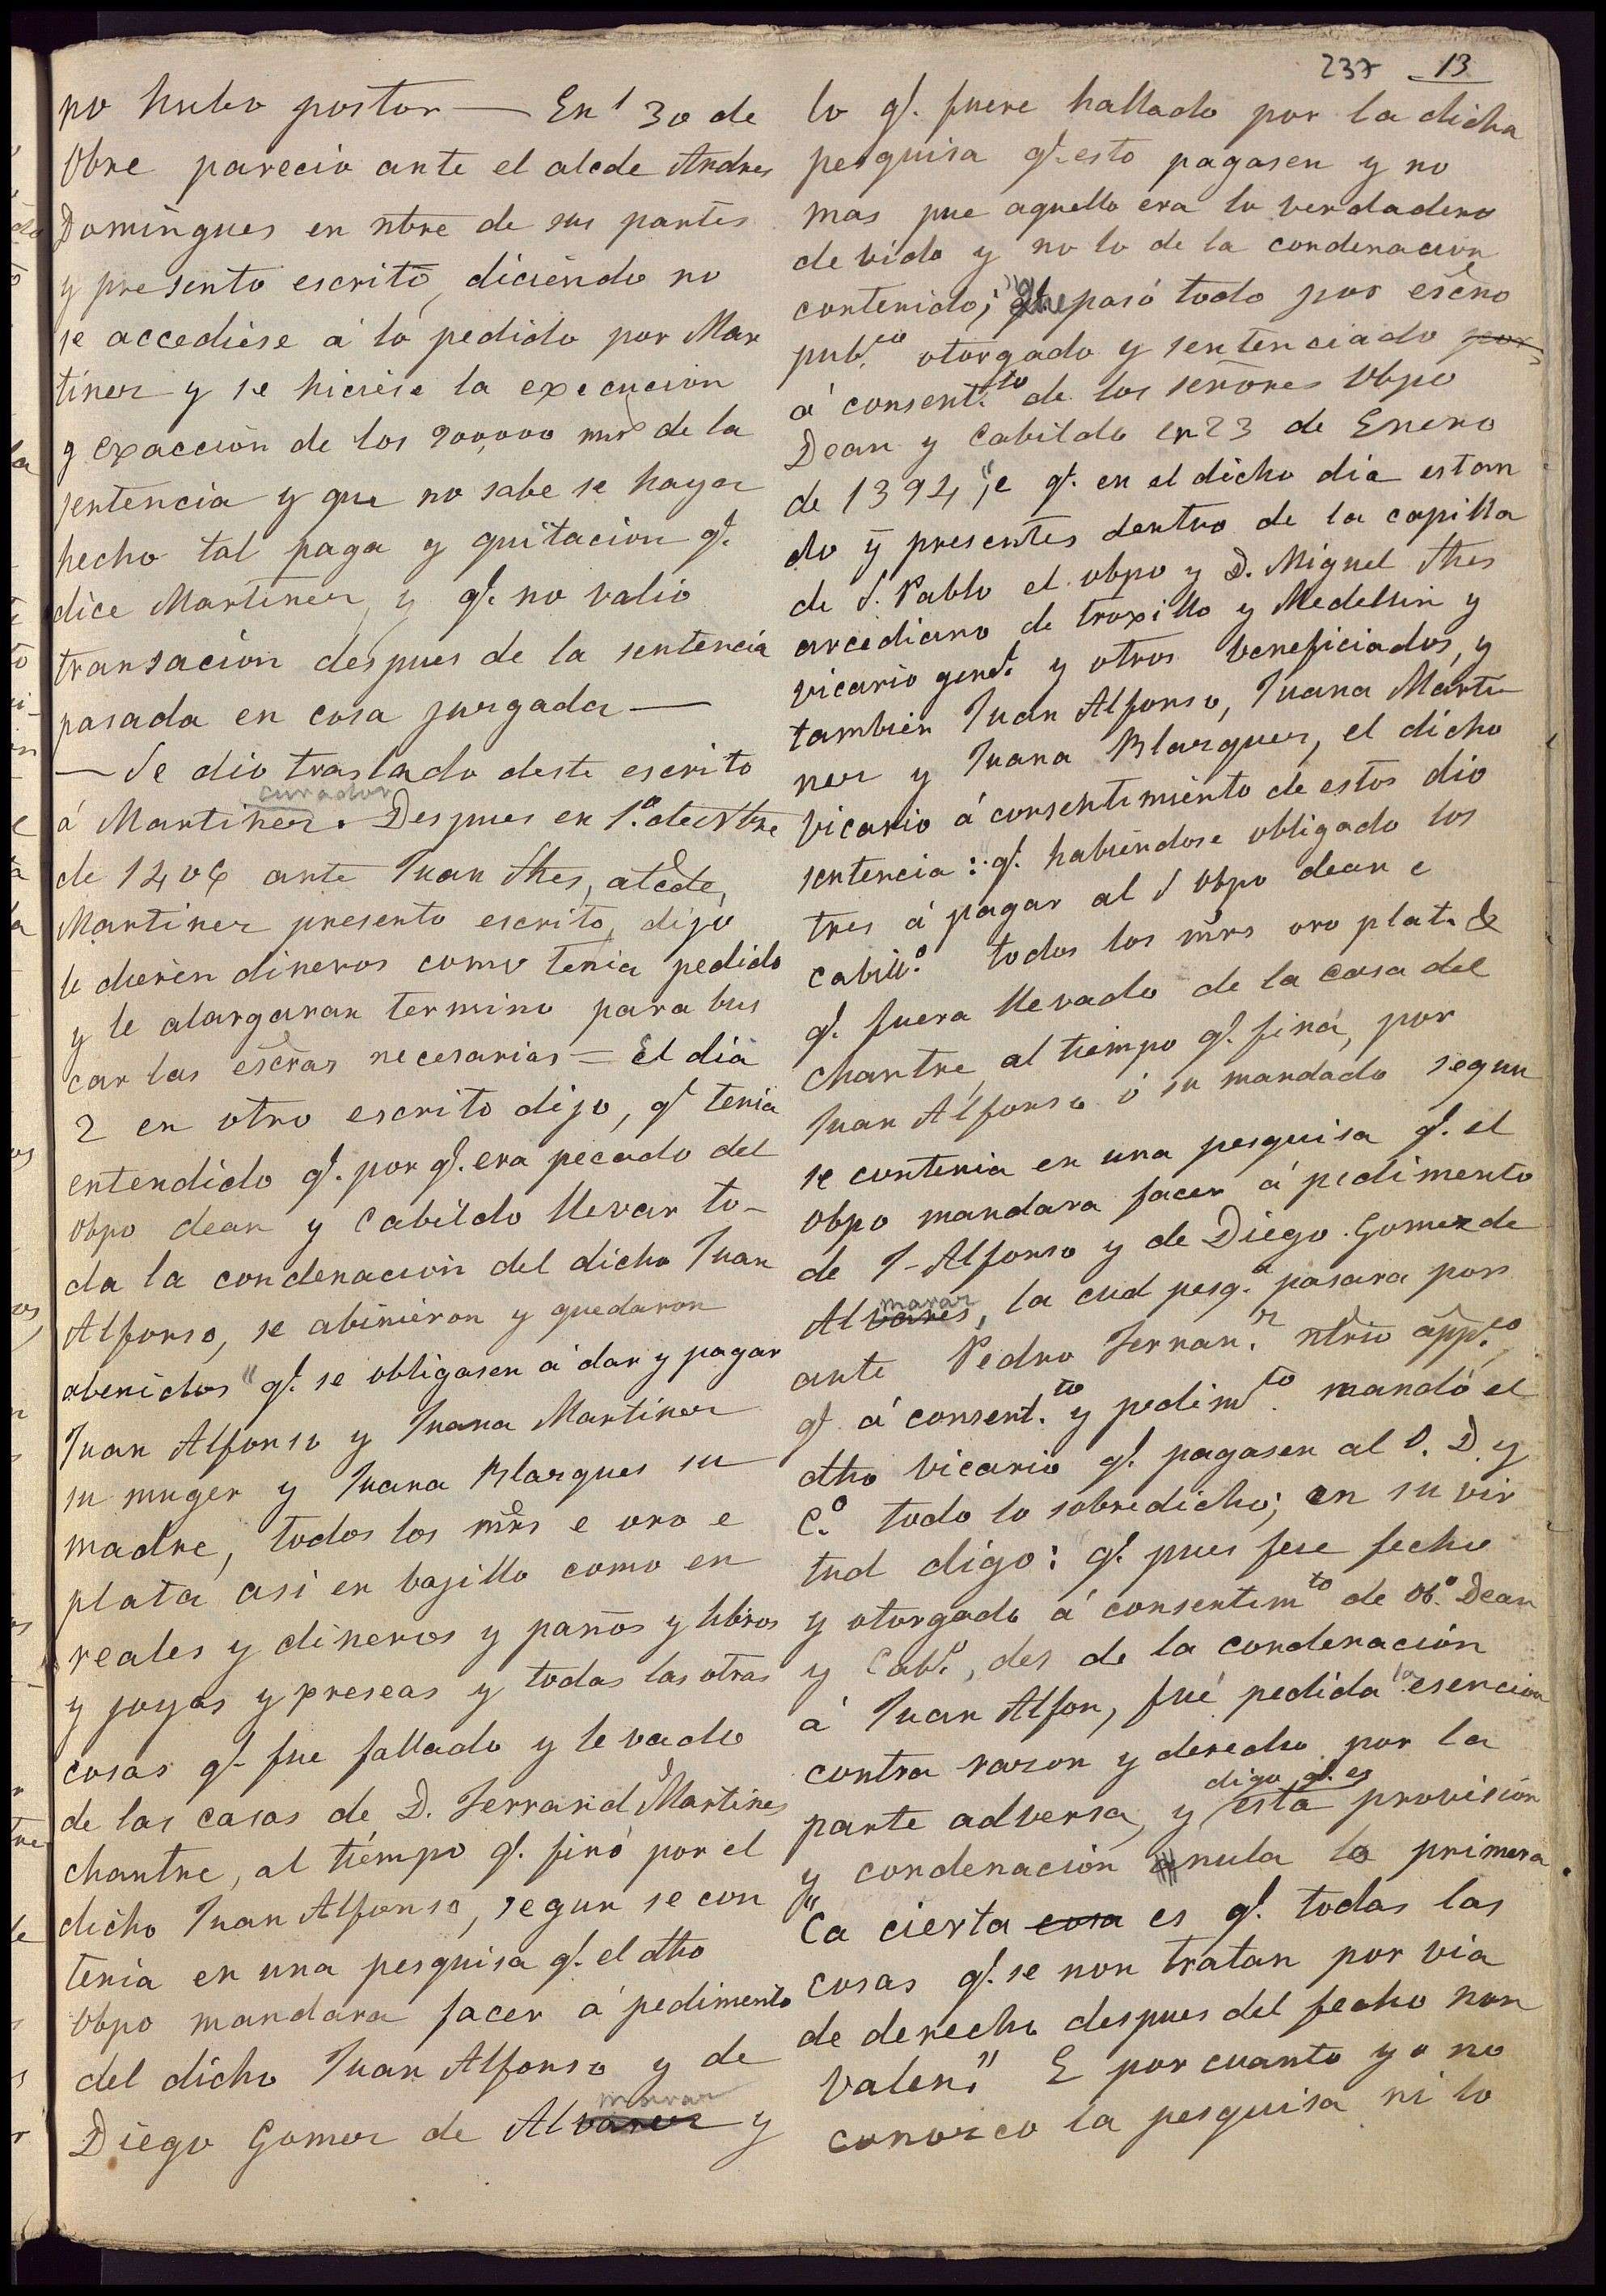 237 13
no hubo postor — En 30 de
Obre parecio ante el alcde Andres
Domingues en nbre de sus partes
y presento escrito, diciendo no
se accediese á lo pedido por Mar
tinez y se hiciese la execucion
y exacción de los 200,000 mrs de la
sentencia y que no sabe se haya
hecho tal paga y quitacion q.
dice Martinez, y q. no valio
transacion despues de la sentencia
pasada en cosa juzgada —
— Se dio traslado deste escrito
curador
á Martinez. Despues en 1.º de Nbre
de 1406 ante Juan Shes, alcde,
Martinez presento escrito, dijo
le diesen dineros como tenia pedido
y le alargaran termino para bus
car las escras necesarias = el dia
2 en otro escrito dijo, q. tenia
entendido q. por q. era pecado del
obpo dean y Cabildo llevar to-
da la condenacion del dicho Juan
Alfonso, se abinieron y quedaron
abenidos "q. se obligasen á dar y pagar
Juan Alfonso y Juana Martinez
su muger y Juana Blazques su
madre, todos los mrs e oro e
plata asi en bajilla como en
reales y dineros y paños y libros
y joyas y preseas y todas las otras
cosas q. fue fallado y levado
de las casas de D. Ferrand Martines
chantre, al tiempo q. finó por el
dicho Juan Alfonso, segun se con
tenia en una pesquisa q. el dho
obpo mandara facer á pedimento
del dicho Juan Alfonso y de
maraz
Diego Gomez de Alvarez y
lo q. fuere hallado por la dicha
pesquisa q. esto pagasen y no
mas pue aquello era lo verdadero
devido y no lo de la condenacion
contenido; que pasó todo por escno
pub.co otorgado y sentenciado por
á consent.to de los señores Obpo
Dean y Cabildo en 23 de Enero
de 1394", e q. en el dicho dia estan
do y presentes dentro de la capilla
de S. Pablo el obpo y D. Miguel Shes
arcediano de troxillo y Medellin y
vicario genel. y otros beneficiados, y
tambien Juan Alfonso, Juana Marti
nez y Juana Blazquez, el dicho
vicario á consentimiento de estos dio
sentencia: q. habiendose obligado los
tres á pagar al S Obpo dean e
cabill.º todos los mrs oro plata &
q. fuera llevado de la casa del
chantre, al tiempo q. finá, por
Juan Alfonso ó su mandado segun
se contenia en una pesquisa q. el
Obpo mandara facer á pedimento
de J-Alfonso y de Diego Gomez de
maraz
Alvares, la cual pesq.a pasara por
ante Pedro Fernan.z ntrio app.co
q. á consent.to y pedim.to mandó el
dho vicario q. pagasen al O. D. y
C.º todo lo sobredicho; en su vir
tud digo: q. pues fue fecho
y otorgado á consentim.to de Ob.º Dean
y Cab.º, des de la condenación
á Juan Alfon, fué pedida la esencion
contra razon y derecho por la
digo q. es
parte adversa, y esta provision
y condenación anula la primera
"Ca cierta cosa es q. todas las
cosas q. se non tratan por via
de derecho despues del fecho non
valen." E por cuanto yo no
conozco la pesquisa ni lo